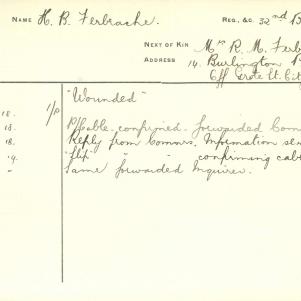 NAME H. B. Ferbrache. REG. & C. 32nd B
NEXT OF KIN Mrs R. M. Ferb
ADDRESS 14. Burlington
Off Grote St. City
1/0 "Wounded"
18. confirmed. forwarded Com
18. Reply from Commrs. Information
14. " " confirming cab
" Same forwarded Inquirer.